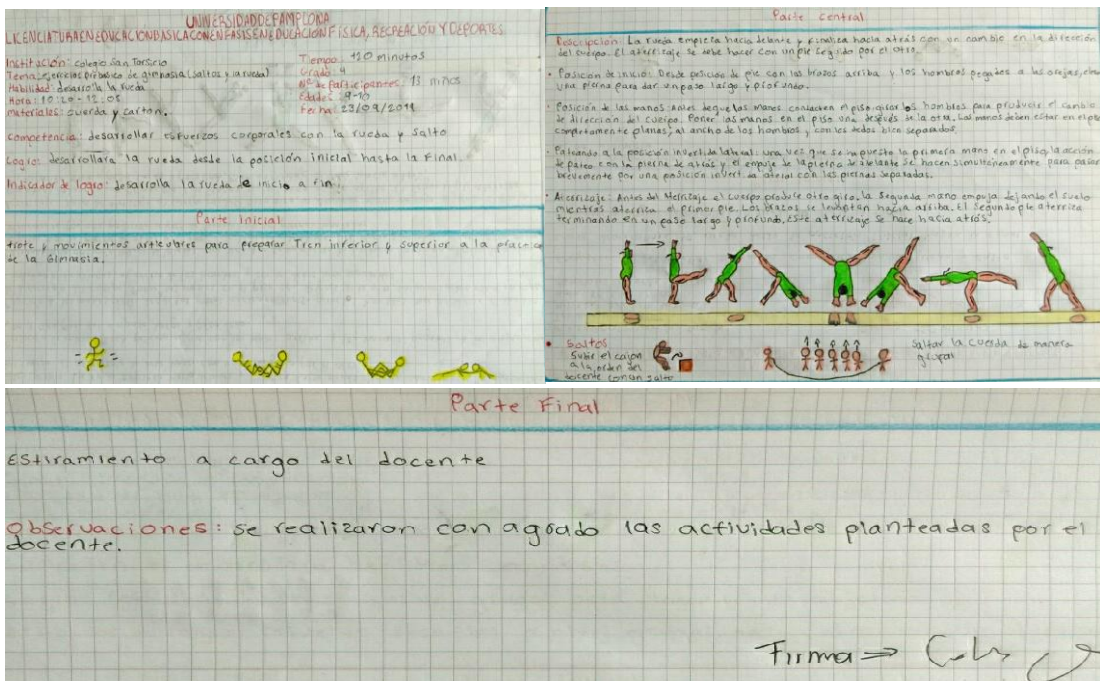 UNIVERSIDAD DE PAMPLONA
LICENCIATURA EN EDUCACION BASICA CON ENFASIS EN EDUCACIÓN FÍSICA, RECREACIÓN Y DEPORTES
Institución: colegio San Tarsicio
Tema: ejercicios prebasico de gimnasia (saltos y la rueda)
Habilidad: desarrolla la rueda
Hora: 10:20 - 12:05
materiales: cuerda y carton.
Tiempo: 120 minutos
Grado: 4
Nº de participantes: 13 niños
Edades: 9-10
Fecha: 23/09/2019
Competencia: desarrollar esfuerzos corporales con la rueda y salto
Logro: desarrollara la rueda desde la posición inicial hasta la final.
Indicador de logro: desarrolla la rueda de inicio a fin.
Parte Inicial
trote y movimientos articulares para preparar Tren inferior y superior a la practica
de la Gimnasia.
Parte central
Descripción: La rueda empieza hacia delante y finaliza hacia atrás con un cambio en la dirección
del cuerpo. El aterrizaje se debe hacer con un pie seguido por el otro.
• Posición de inicio: Desde posición de pie con los brazos arriba y los hombros pegados a las orejas,
una pierna para dar un paso largo y profundo.
• Posición de las manos: Antes de que las manos contacten el piso girar los hombros para producir el cambio
de dirección del cuerpo. Poner las manos en el piso una después de la otra. Las manos deben estar en el piso
completamente planas, al ancho de los hombros, con los dedos bien separados.
• Pateando a la posición invertida lateral: una vez que se ha puesto la primera mano en el piso, la acción
de pateo con la pierna de atrás y el empuje de la pierna de adelante se hacen simultáneamente para pasar
brevemente por una posición invertida lateral con las piernas separadas.
• Aterrizaje: Antes del Aterrizaje el cuerpo produce otro giro, la segunda mano empuja dejando el suelo
mientras aterriza el primer pie. Los brazos se levantan hacia arriba. El segundo pie aterriza
terminando en un paso largo y profundo, este aterrizaje se hace hacia atrás.
• Saltos
Subir el cajon
a la orden del
docente con un salto
saltar la cuerda de manera
grupal
Parte Final
Estiramiento a cargo del docente
Observaciones: se realizaron con agrado las actividades planteadas por el
docente.
Firma ⇒